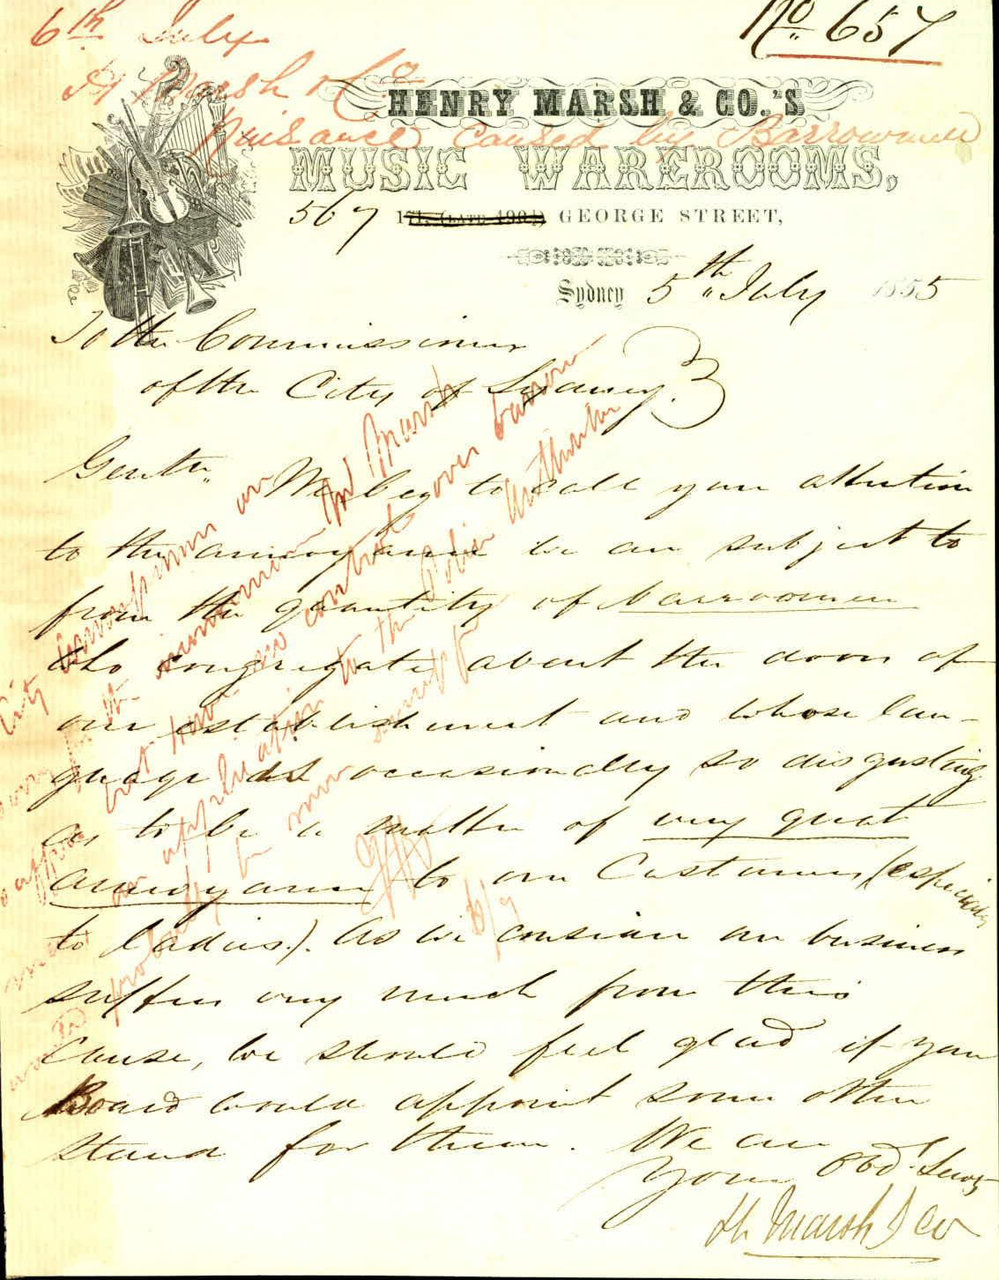 No 657
6th July
H Marsh & Co
Nuisance caused by Barrowmen
HENRY MARSH & CO.'S
MUSIC WAREROOMS,
567 171, (LATE 490½) GEORGE STREET,
Sydney 5th July 1855
To the Commissioners
of the City of Sydney.
Gentn. We beg to call your attention
to the annoyance we are subject to
from the quantity of barrowmen
who congregate about the doors of
our establishment and whose lan-
guage is occasionally so disgusting
as to be a matter of very great
annoyance to our Customers (especially
to ladies). As we consider our business
suffers very much from this
Cause, we should feel glad if your
Board would appoint some other
stand for them. We are
Your Obdt. Servts
H. Marsh & Co
City
Mr Marsh
but have no control over barrow
an application to the Police Authorities
probably be more
6/7